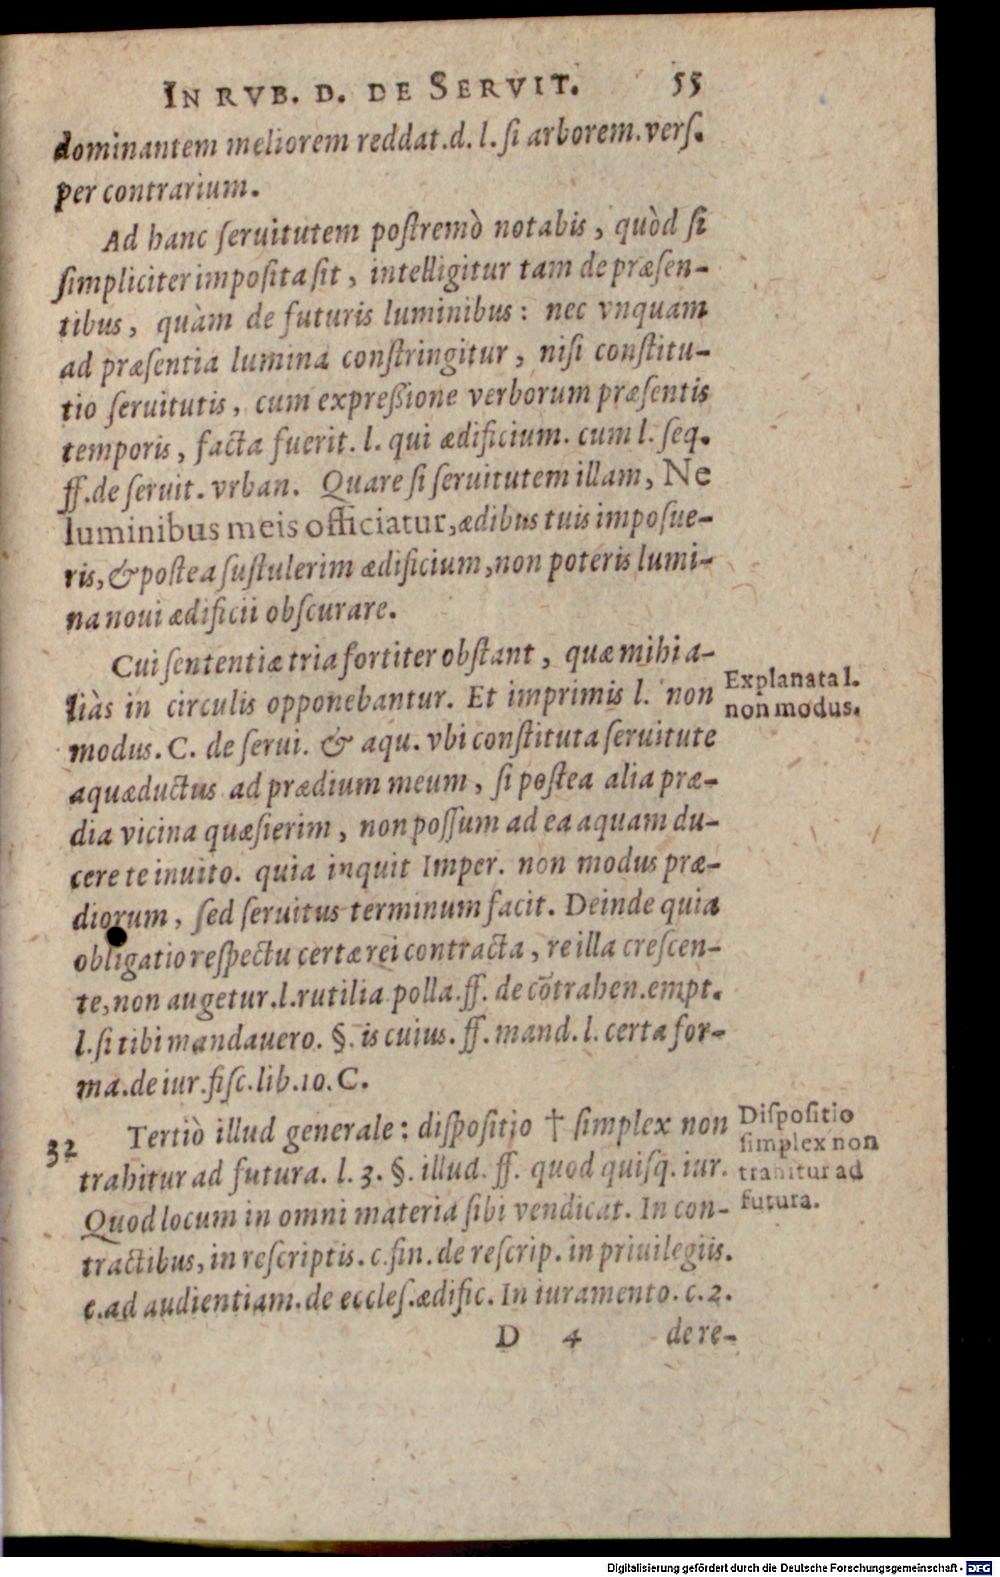 IN RVB. D. DE SERVIT. 55
dominantem meliorem reddat.d.l.si arborem.vers.
per contrarium.
Ad hanc seruitutem postremò notabis, quòd si
simpliciter imposita sit, intelligitur tam de præsen-
tibus, quàm de futuris luminibus: nec vnquam
ad præsentia lumina constringitur, nisi constitu-
tio seruitutis, cum expreßione verborum præsentis
temporis, facta fuerit. l. qui ædificium. cum l. seq.
ff.de seruit. vrban. Quare si seruitutem illam, Ne
luminibus meis officiatur, ædibus tuis imposue-
ris, & postea sustulerim ædificium, non poteris lumi-
na noui ædificii obscurare.
Cui sententiæ tria fortiter obstant, quæ mihi a-
liàs in circulis opponebantur. Et imprimis l. non
Explanata l.
non modus.
modus. C. de serui. & aqu. vbi constituta seruitute
aquæductus ad prædium meum, si postea alia præ-
dia vicina quæsierim, non possum ad ea aquam du-
cere te inuito. quia inquit Imper. non modus præ-
diorum, sed seruitus terminum facit. Deinde quia
obligatio respectu certæ rei contracta, re illa crescen-
te, non augetur.l.rutilia polla.ff. de cõtrahen.empt.
l.si tibi mandauero. §. is cuius. ff. mand. l. certa for-
ma.de iur.fisc.lib.10.C.
32 Tertiò illud generale: dispositio † simplex non
Dispositio
simplex non
trahitur ad
futura.
trahitur ad futura. l. 3. §. illud. ff. quod quisq. iur.
Quod locum in omni materia sibi vendicat. In con-
tractibus, in rescriptis. c.fin. de rescrip. in priuilegiis.
c.ad audientiam.de eccles.ædific. In iuramento. c.2.
D 4 de re-
Digitalisierung gefördert durch die Deutsche Forschungsgemeinschaft - DFG